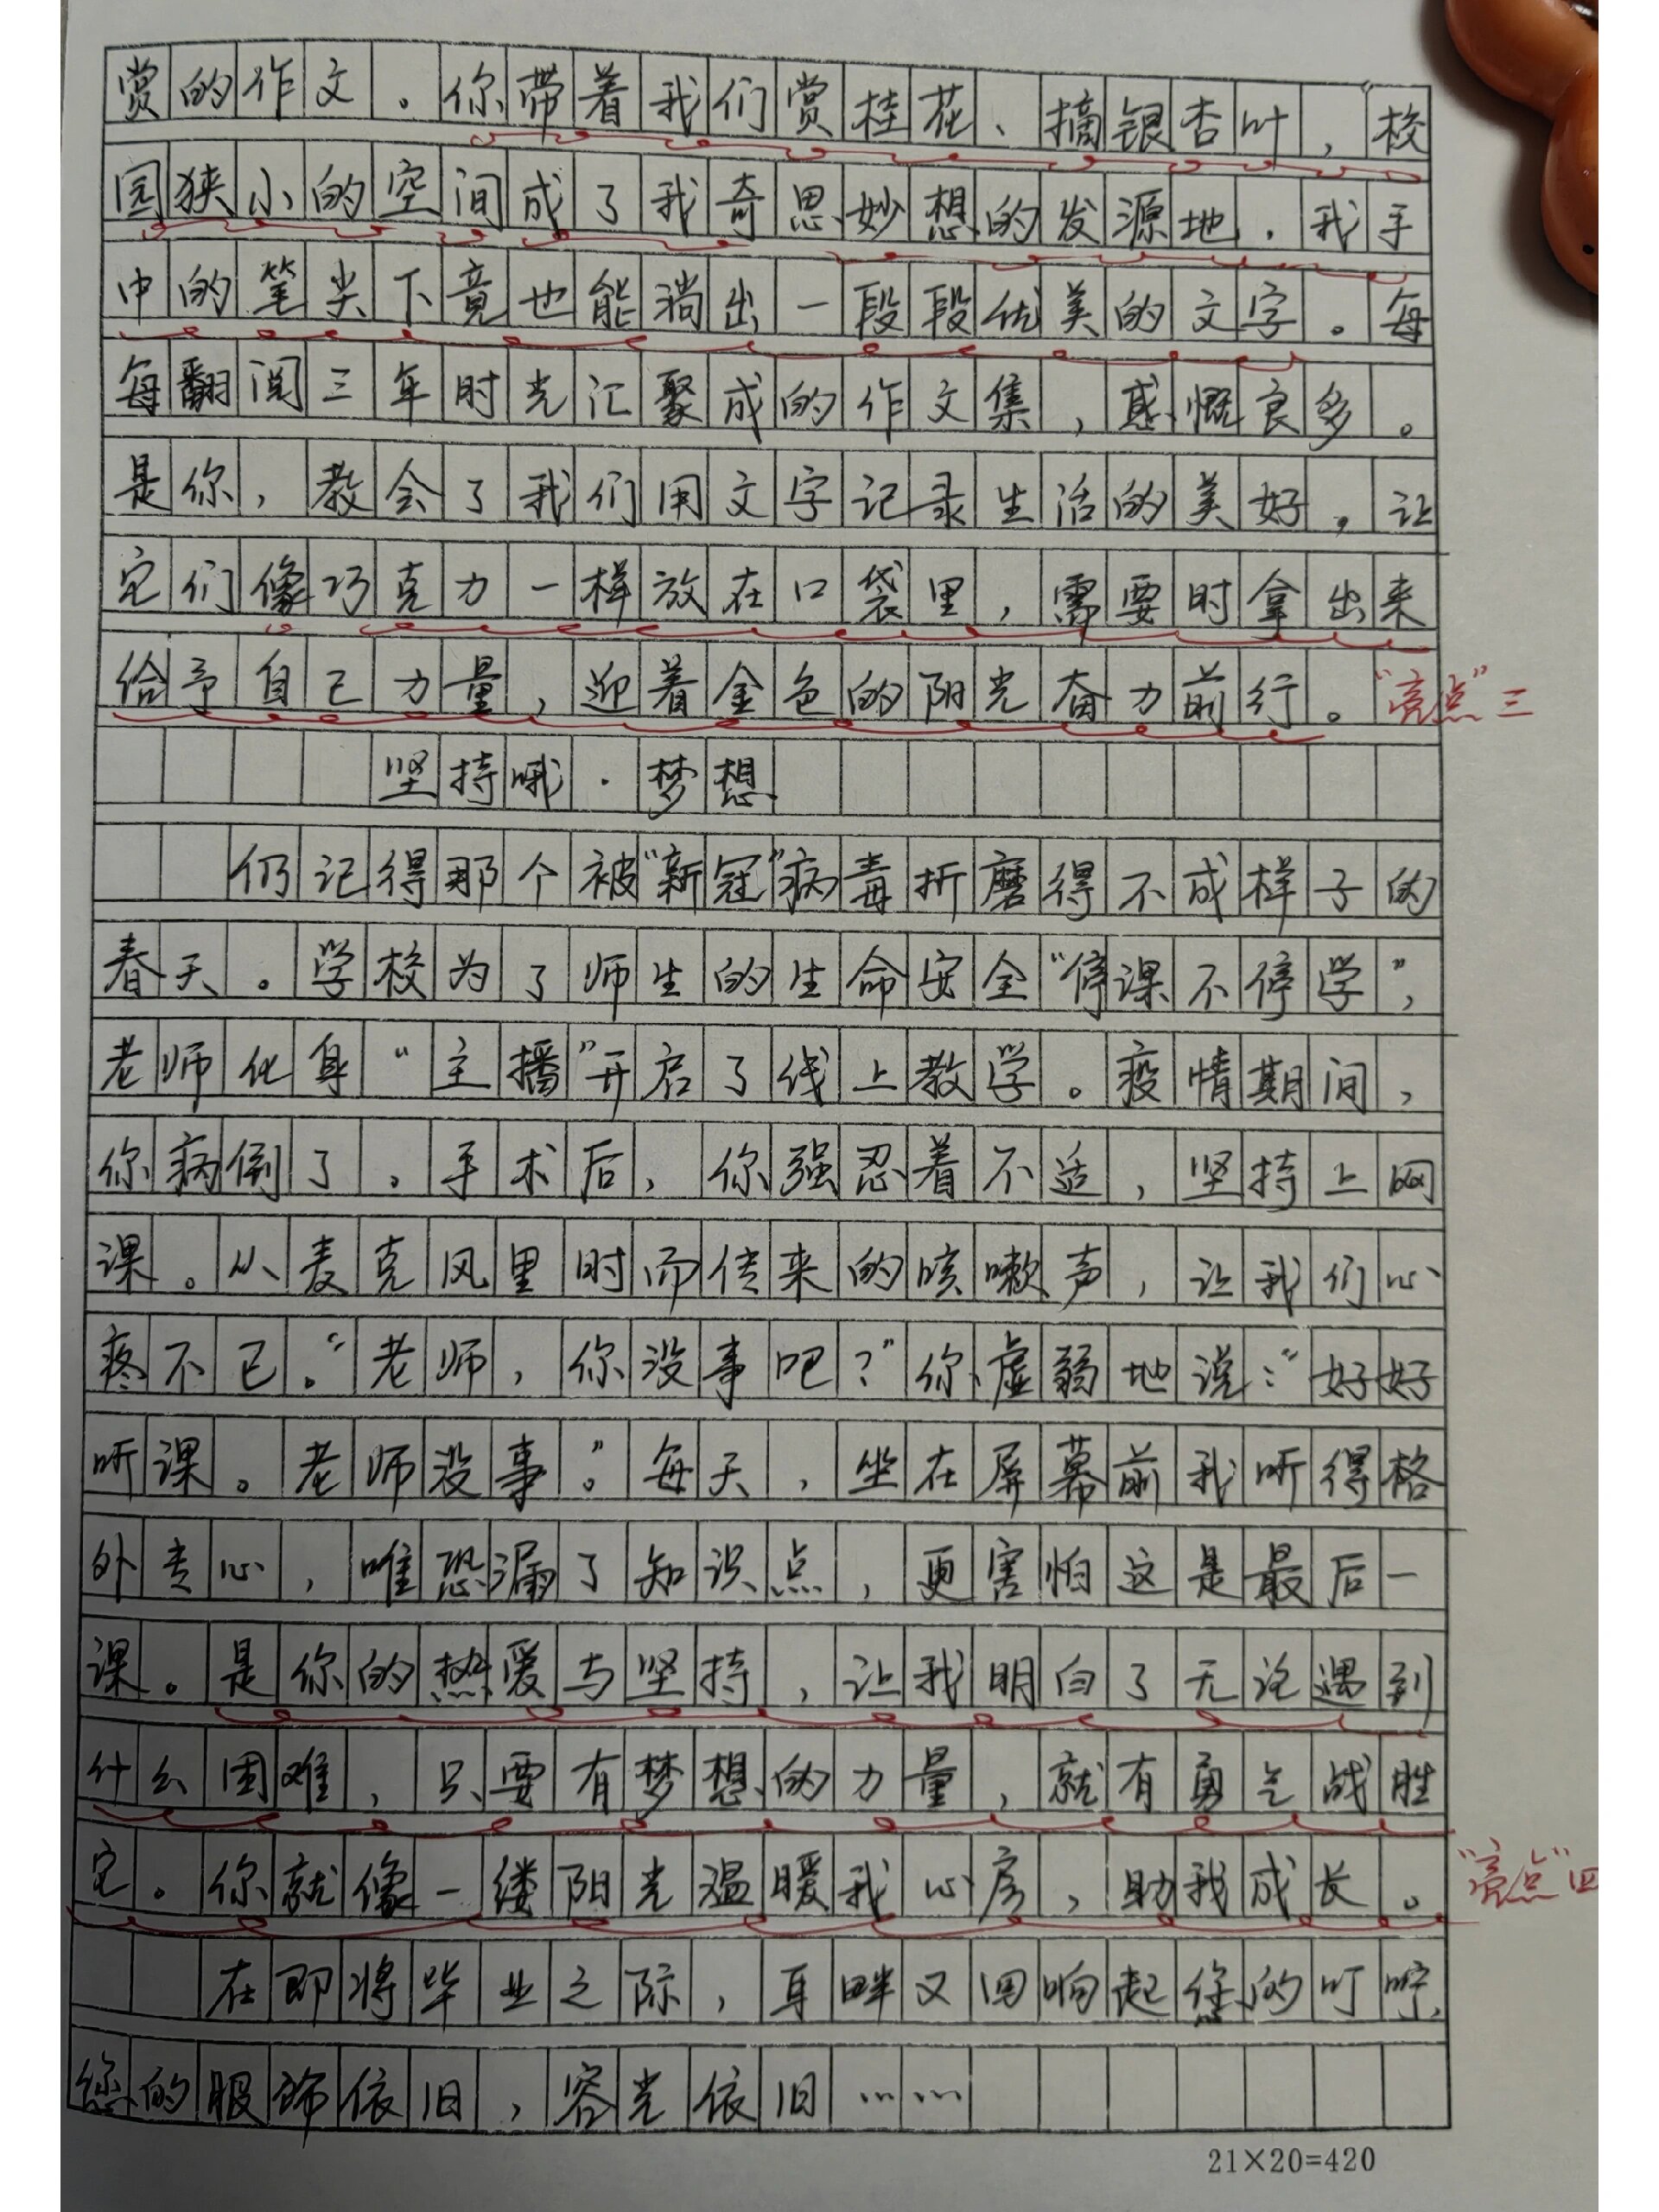 赏的作文。你带着我们赏桂花、摘银杏叶，校
园狭小的空间成了我奇思妙想的发源地，我手
中的笔尖下竟也能淌出一段段优美的文字。每
每翻阅三年时光汇聚成的作文集，感慨良多。
是你，教会了我们用文字记录生活的美好，让
它们像巧克力一样放在口袋里，需要时拿出来
给予自己力量，迎着金色的阳光奋力前行。“亮点”三
坚持哦·梦想
仍记得那个被“新冠”病毒折磨得不成样子的
春天。学校为了师生的生命安全“停课不停学”，
老师化身“主播”开启了线上教学。疫情期间，
你病倒了。手术后，你强忍着不适，坚持上网
课。从麦克风里时而传来的咳嗽声，让我们心
疼不已。“老师，你没事吧？”你虚弱地说：“好好
听课。老师没事。”每天，坐在屏幕前我听得格
外专心，唯恐漏了知识点，更害怕这是最后一
课。是你的热爱与坚持，让我明白了无论遇到
什么困难，只要有梦想的力量，就有勇气战胜
它。你就像一缕阳光温暖我心房，助我成长。“亮点”四
在即将毕业之际，耳畔又回响起您的叮咛，
您的服饰依旧，容光依旧……
21×20=420